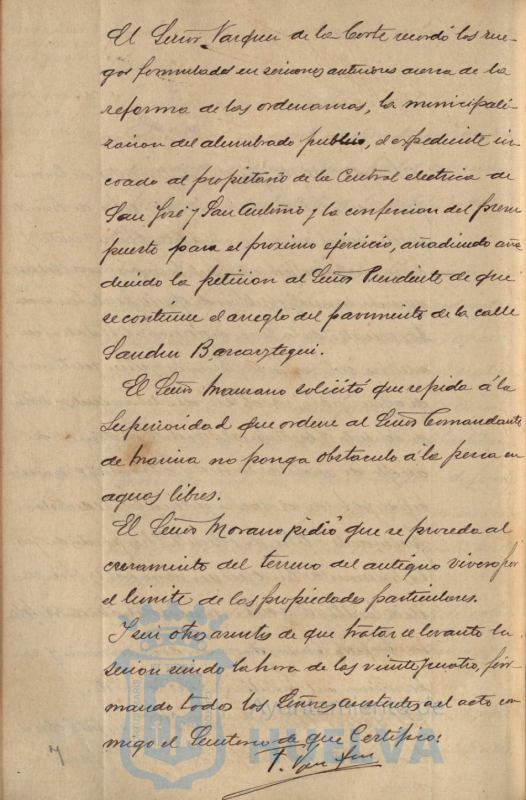 El Señor Vazquez de la Corte recordó los rue-
gos formulados en sesiones anteriores acerca de la
reforma de las ordenanzas, la municipali-
zacion del alumbrado publico, el expediente in-
coado al propietario de la Central electrica de
San José y San Antonio y la confeccion del presu
puesto para el proximo ejercicio, añadiendo aña
diendo la peticion al Señor Presidente de que
se continue el arreglo del pavimento de la calle
Sanchez Barcaiztegui.
El Señor Manzano solicitó que se pida á la
Superioridad que ordene al Señor Comandante
de Marina no ponga obstaculo á la pesca en
aguas libres.
El Señor Morano pidió que se proceda al
cerramiento del terreno del antiguo vivero por
el limite de las propiedades particulares.
Y sin otros asuntos de que tratar se levantó la
sesion siendo la hora de las veinte y cuatro, fir-
mando todos los Señores asistentes al acto con-
migo el Secretario de que Certifico:
HUELVA